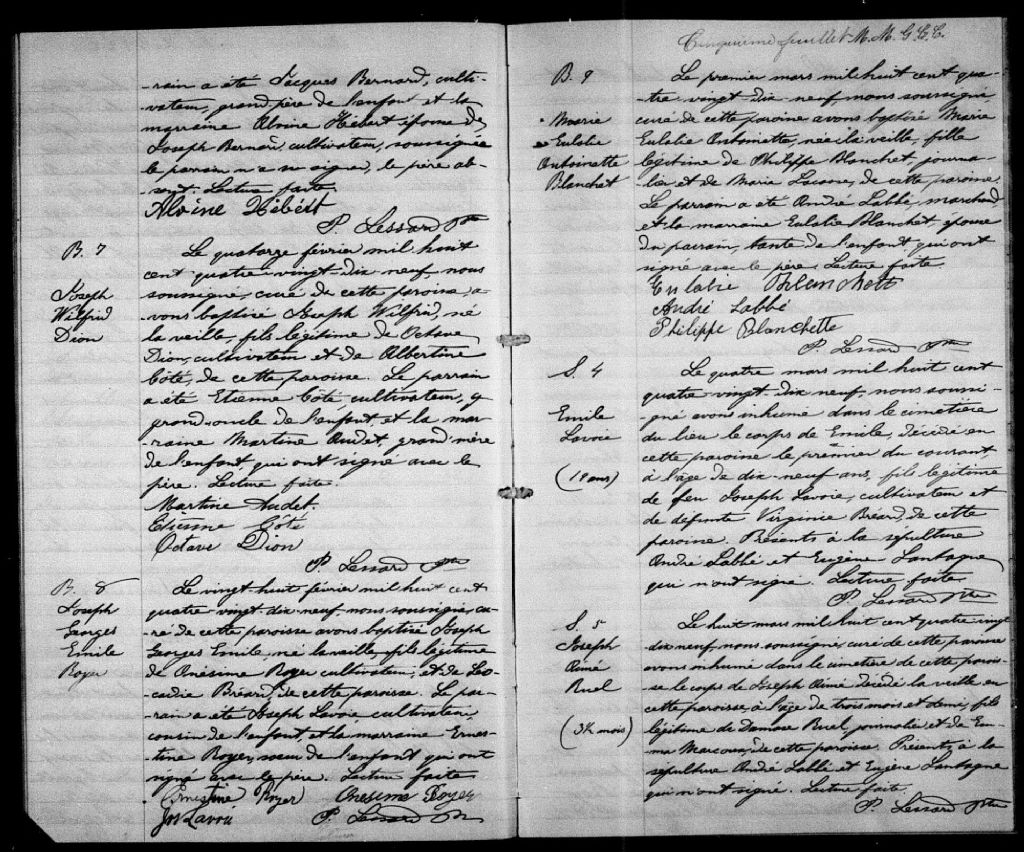 -rain a été Jacques Bernard, culti-
vateur, grand père de l'enfant et la
marraine Alvine Hébert épouse de
Joseph Bernard, cultivateur, soussignée
le parrain n'a su signer, le père ab-
sent. Lecture faite
Alvine Hébért
P. Lessard Ptre
B. 7
Joseph
Wilfrid
Dion
Le quatorze février mil huit
cent quatre vingt dix neuf, nous
soussigné, curé de cette paroisse, a-
vons baptisé Joseph Wilfrid, né
la veille, fils légitime de Octave
Dion, cultivateur et de Albertine
Côté, de cette paroisse. Le parrain
a été Etienne Côté cultivateur,
grand-oncle de l'enfant, et la mar-
raine Martine Audet, grand'mère
de l'enfant, qui ont signé avec le
père. Lecture faite.
Martine Audet.
Etienne Côté
Octave Dion
P. Lessard Ptre
B. 8
Joseph
Georges
Emile
Royer
Le vingt huit février mil huit cent
quatre vingt dix-neuf, nous soussigné, cu-
ré de cette paroisse avons baptisé Joseph
Georges Emile, né la veille, fils légitime
de Onésime Royer cultivateur, et de Léo-
cadie Bréard, de cette paroisse. Le par-
rain a été Joseph Lavoie cultivateur,
cousin de l'enfant et la marraine Ernes-
tine Royer, sœur de l'enfant qui ont
signé avec le père. Lecture faite
Ernestine Royer Onesime Royer
Jos Lavoie P. Lessard Ptre
Cinquième feuillet M. M. G. C. C.
B. 9
Marie
Eulalie
Antoinette
Blanchet
Le premier mars mil huit cent qua-
-tre vingt dix neuf, nous soussigné,
curé de cette paroisse avons baptisé Marie
Eulalie Antoinette, née la veille, fille
légitime de Philippe Blanchet, journa-
lier et de Marie, de cette paroisse.
Le parrain a été André Labbé, marchand
et la marraine Eulalie Blanchet, épouse
du parrain, tante de l'enfant qui ont
signé avec le père. Lecture faite.
Eulalie Blanchett
André Labbé
Philippe Blanchette
P. Lessard Ptre
S. 4
Emile
Lavoie
(19 ans)
Le quatre mars mil huit cent
quatre vingt dix neuf, nous soussi-
gné avons inhumé dans le cimetière
du lieu le corps de Emile, décédé en
cette paroisse le premier du courant
à l'âge de dix-neuf ans, fils légitime
de feu Joseph Lavoie, cultivateur et
de défunte Virginie Bréard, de cette
paroisse. Présents à la sépulture
André Labbé et Eugène Lantagne
qui n'ont signé. Lecture faite
P. Lessard Ptre
S. 5
Joseph
Aimé
Ruel
(3½ mois)
Le huit mars mil huit cent quatre vingt
dix neuf, nous soussigné, curé de cette paroisse
avons inhumé dans le cimetière de cette parois-
se le corps de Joseph Aimé décédé la veille en
cette paroisse, à l'âge de trois mois et demi, fils
légitime de Damase Ruel, journalier et de Em-
ma Marcoux, de cette paroisse. Présents à la
sépulture André Labbé et Eugène Lantagne
qui n'ont signé. Lecture faite.
P. Lessard Ptre